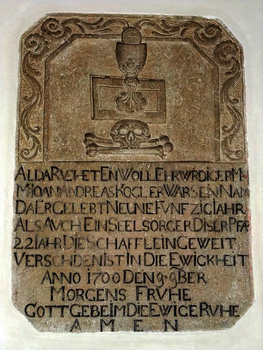 ALDA RVHET EN WOLL EHRWRDIGER M
M IOAN ANDREAS KOGLER WAR SEN NAM
DA ER GELEBT NEUNE FUNFZIG IAHR
ALS AUCH EIN SEELSORGER DISER PFAR
22 IAHR DIE SCHAFFLEIN GEWEIT
VERSCHIDEN IST IN DIE EWICKHEIT
ANNO 1700 DEN 9·9BER
MORGENS FRVHE
GOTT GEBE IM DIE EWIGE RUHE
AMEN